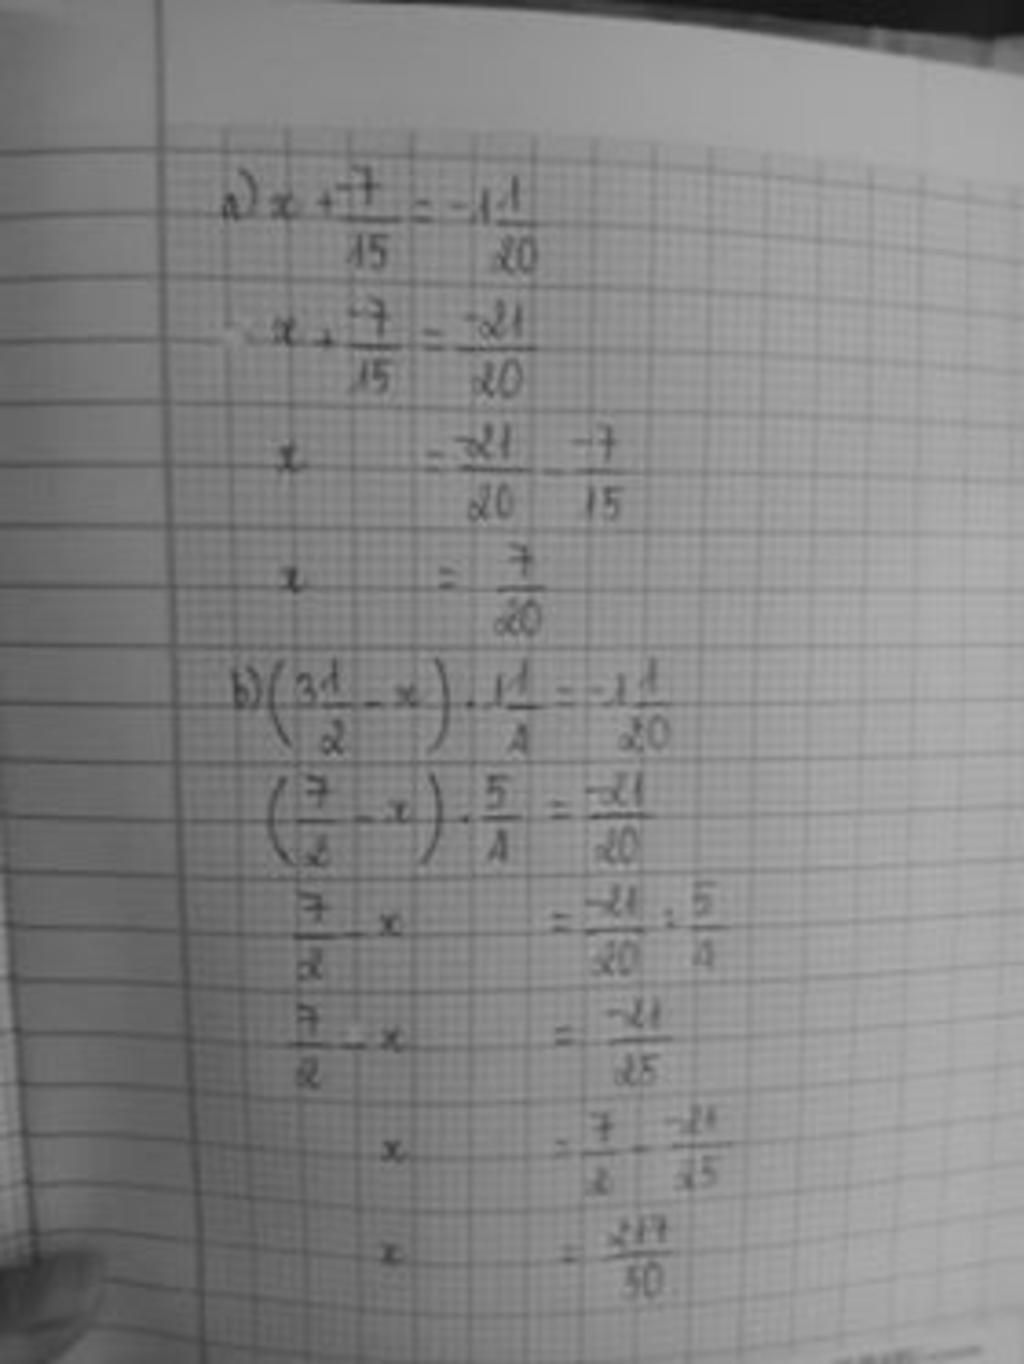 a) x + -7/15 = -1 1/20
x + -7/15 = -21/20
x = -21/20 - -7/15
x = 7/20
b) (3 1/2 - x) . 1 1/4 = -1 1/20
(7/2 - x) . 5/4 = -21/20
7/2 - x = -21/20 : 5/4
7/2 - x = -21/25
x = 7/2 - -21/25
x = 217/50